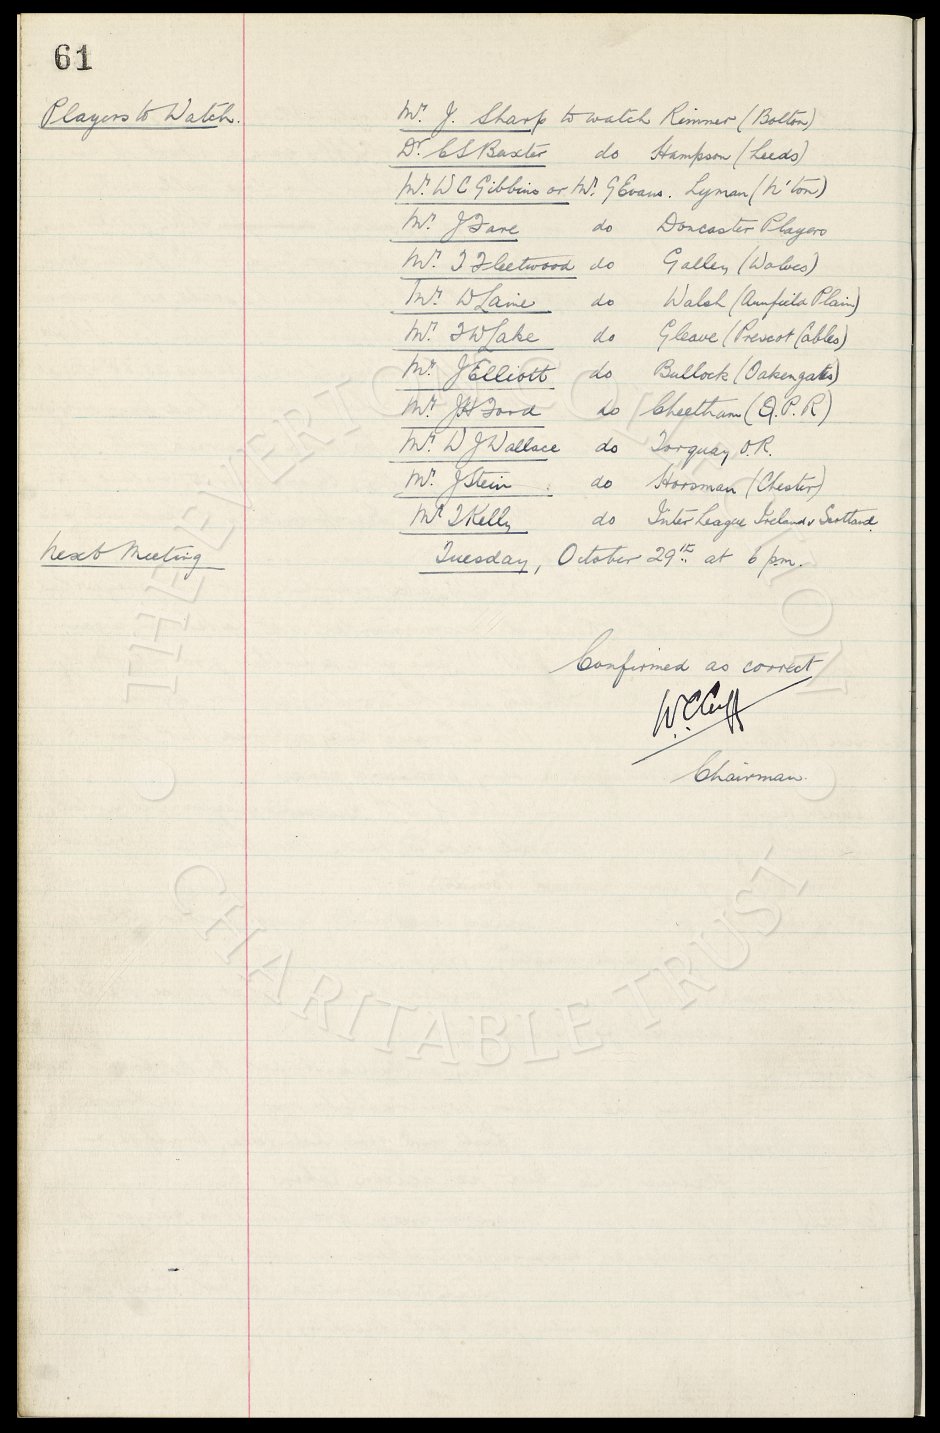 61
Players to Watch. Mr. J. Sharp to watch Rimmer (Bolton)
Dr. C S Baxter do Hampson (Leeds)
Mr. W C Gibbins or Mr. G Evans. Lyman (N'ton)
Mr. J Fare do Doncaster Players
Mr. T Fleetwood do Galley (Wolves)
Mr. W Laine do Walsh (Annfield Plain)
Mr. F W Lake do Gleave (Prescot Cables)
Mr. J Elliott do Bullock (Oakengates)
Mr. J H Ford do Cheetham (Q.P.R)
Mr. W J Wallace do Torquay O.R.
Mr. J Stein do Horsman (Chester)
Mr T Kelly do Inter League Ireland v Scotland.
Next Meeting Tuesday, October 29th at 6 p.m.
Confirmed as correct
W.C.Cuff
Chairman.
THE EVERTON COLLECTION
CHARITABLE TRUST